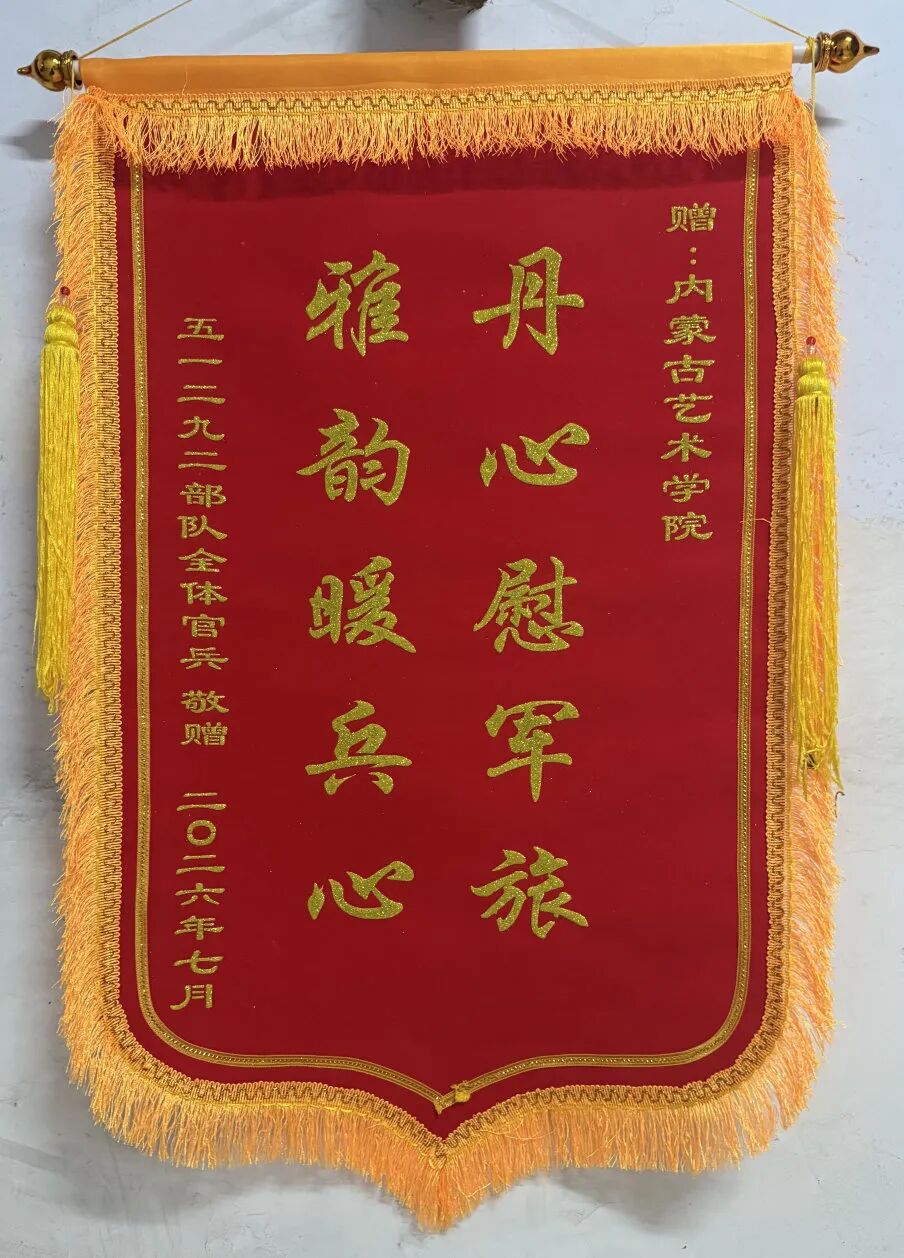 赠：内蒙古艺术学院
丹心慰军旅
雅韵暖兵心
五一二九二部队全体官兵 敬赠 二〇二六年七月